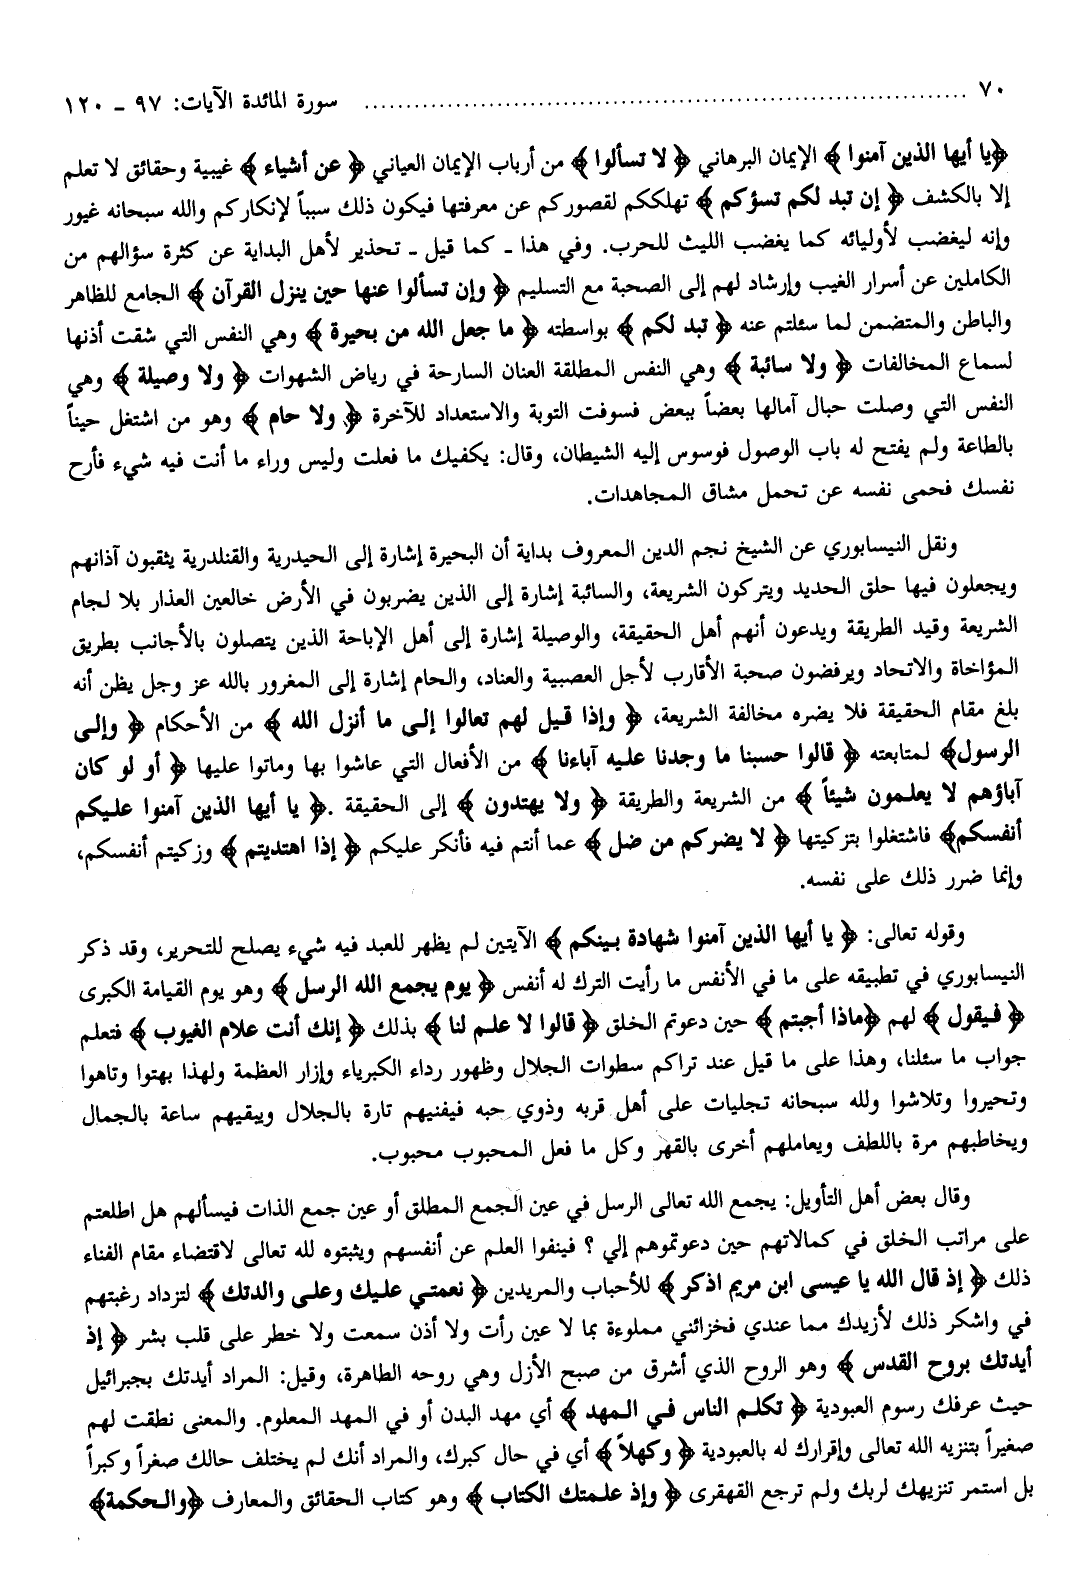 ٧٠ ........................................ سورة المائدة الآيات: ٩٧ ـ ١٢٠
﴿يا أيها الذين آمنوا﴾ الإيمان البرهاني ﴿لا تسألوا﴾ من أرباب الإيمان العياني ﴿عن أشياء﴾ غيبية وحقائق لا تعلم
إلا بالكشف ﴿إن تبد لكم تسؤكم﴾ تهلككم لقصوركم عن معرفتها فيكون ذلك سبباً لإنكاركم والله سبحانه غيور
وإنه ليغضب لأوليائه كما يغضب الليث للحرب. وفي هذا ـ كما قيل ـ تحذير لأهل البداية عن كثرة سؤالهم من
الكاملين عن أسرار الغيب وإرشاد لهم إلى الصحبة مع التسليم ﴿وإن تسألوا عنها حين ينزل القرآن﴾ الجامع للظاهر
والباطن والمتضمن لما سئلتم عنه ﴿تبد لكم﴾ بواسطته ﴿ما جعل الله من بحيرة﴾ وهي النفس التي شقت أذنها
لسماع المخالفات ﴿ولا سائبة﴾ وهي النفس المطلقة العنان السارحة في رياض الشهوات ﴿ولا وصيلة﴾ وهي
النفس التي وصلت حبال آمالها بعضاً ببعض فسوفت التوبة والاستعداد للآخرة ﴿ولا حام﴾ وهو من اشتغل حيناً
بالطاعة ولم يفتح له باب الوصول فوسوس إليه الشيطان، وقال: يكفيك ما فعلت وليس وراء ما أنت فيه شيء فأرح
نفسك فحمى نفسه عن تحمل مشاق المجاهدات.
ونقل النيسابوري عن الشيخ نجم الدين المعروف بداية أن البحيرة إشارة إلى الحيدرية والقنلدرية يثقبون آذانهم
ويجعلون فيها حلق الحديد ويتركون الشريعة، والسائبة إشارة إلى الذين يضربون في الأرض خالعين العذار بلا لجام
الشريعة وقيد الطريقة ويدعون أنهم أهل الحقيقة، والوصيلة إشارة إلى أهل الإباحة الذين يتصلون بالأجانب بطريق
المؤاخاة والاتحاد ويرفضون صحبة الأقارب لأجل العصبية والعناد، والحام إشارة إلى المغرور بالله عز وجل يظن أنه
بلغ مقام الحقيقة فلا يضره مخالفة الشريعة، ﴿وإذا قيل لهم تعالوا إلى ما أنزل الله﴾ من الأحكام ﴿وإلى
الرسول﴾ لمتابعته ﴿قالوا حسبنا ما وجدنا عليه آباءنا﴾ من الأفعال التي عاشوا بها وماتوا عليها ﴿أو لو كان
آباؤهم لا يعلمون شيئاً﴾ من الشريعة والطريقة ﴿ولا يهتدون﴾ إلى الحقيقة .﴿يا أيها الذين آمنوا عليكم
أنفسكم﴾ فاشتغلوا بتزكيتها ﴿لا يضركم من ضل﴾ عما أنتم فيه فأنكر عليكم ﴿إذا اهتديتم﴾ وزكيتم أنفسكم،
وإنما ضرر ذلك على نفسه.
وقوله تعالى: ﴿يا أيها الذين آمنوا شهادة بينكم﴾ الآيتين لم يظهر للعبد فيه شيء يصلح للتحرير، وقد ذكر
النيسابوري في تطبيقه على ما في الأنفس ما رأيت الترك له أنفس ﴿يوم يجمع الله الرسل﴾ وهو يوم القيامة الكبرى
﴿فيقول﴾ لهم ﴿ماذا أجبتم﴾ حين دعوتم الخلق ﴿قالوا لا علم لنا﴾ بذلك ﴿إنك أنت علام الغيوب﴾ فتعلم
جواب ما سئلنا، وهذا على ما قيل عند تراكم سطوات الجلال وظهور رداء الكبرياء وإزار العظمة ولهذا بهتوا وتاهوا
وتحيروا وتلاشوا ولله سبحانه تجليات على أهل قربه وذوي حبه فيفنيهم تارة بالجلال ويبقيهم ساعة بالجمال
ويخاطبهم مرة باللطف ويعاملهم أخرى بالقهر وكل ما فعل المحبوب محبوب.
وقال بعض أهل التأويل: يجمع الله تعالى الرسل في عين الجمع المطلق أو عين جمع الذات فيسألهم هل اطلعتم
على مراتب الخلق في كمالاتهم حين دعوتموهم إلي ؟ فينفوا العلم عن أنفسهم ويثبتوه لله تعالى لاقتضاء مقام الفناء
ذلك ﴿إذ قال الله يا عيسى ابن مريم اذكر﴾ للأحباب والمريدين ﴿نعمتي عليك وعلى والدتك﴾ لتزداد رغبتهم
في واشكر ذلك لأزيدك مما عندي فخزائني مملوءة بما لا عين رأت ولا أذن سمعت ولا خطر على قلب بشر ﴿إذ
أيدتك بروح القدس﴾ وهو الروح الذي أشرق من صبح الأزل وهي روحه الطاهرة، وقيل: المراد أيدتك بجبرائيل
حيث عرفك رسوم العبودية ﴿تكلم الناس في المهد﴾ أي مهد البدن أو في المهد المعلوم. والمعنى نطقت لهم
صغيراً بتنزيه الله تعالى وإقرارك له بالعبودية ﴿وكهلاً﴾ أي في حال كبرك، والمراد أنك لم يختلف حالك صغراً وكبراً
بل استمر تنزيهك لربك ولم ترجع القهقرى ﴿وإذ علمتك الكتاب﴾ وهو كتاب الحقائق والمعارف ﴿والحكمة﴾